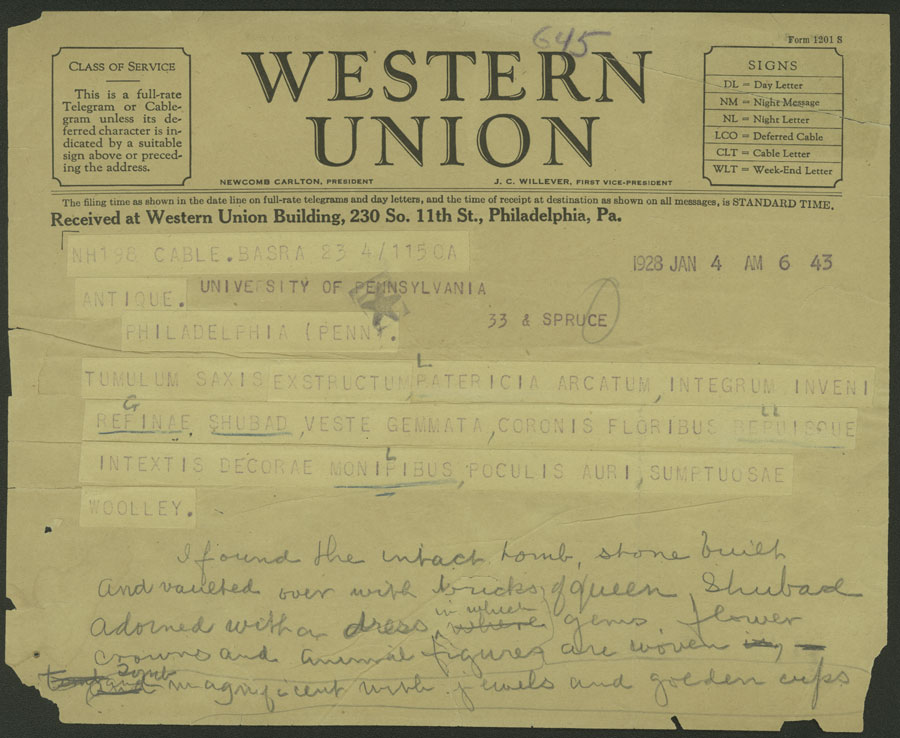 645
Form 1201 S
CLASS OF SERVICE
This is a full-rate
Telegram or Cable-
gram unless its de-
ferred character is in-
dicated by a suitable
sign above or preced-
ing the address.
WESTERN
UNION
NEWCOMB CARLTON, PRESIDENT
J. C. WILLEVER, FIRST VICE-PRESIDENT
SIGNS
DL = Day Letter
NM = Night Message
NL = Night Letter
LCO = Deferred Cable
CLT = Cable Letter
WLT = Week-End Letter
The filing time as shown in the date line on full-rate telegrams and day letters, and the time of receipt at destination as shown on all messages, is STANDARD TIME.
Received at Western Union Building, 230 So. 11th St., Philadelphia, Pa.
NH198 CABLE.BASRA 23 4/1150A
1928 JAN 4 AM 6 43
ANTIQUE. UNIVERSITY OF PENNSYLVANIA
PHILADELPHIA (PENN). 33 & SPRUCE
L
TUMULUM SAXIS EXSTRUCTUM PATERICIA ARCATUM, INTEGRUM INVENI
G LL
REFINAE SHUBAD, VESTE GEMMATA, CORONIS FLORIBUS BEPUISQUE
L
INTEXTIS DECORAE MONIPIBUS, POCULIS AURI, SUMPTUOSAE
WOOLLEY.
I found the intact tomb, stone built
and vaulted over with bricks, of queen Shubad
in which
adorned with a dress where gems flower
crowns and animal figures are woven in,
Tomb
and magnificent with jewels and golden cups